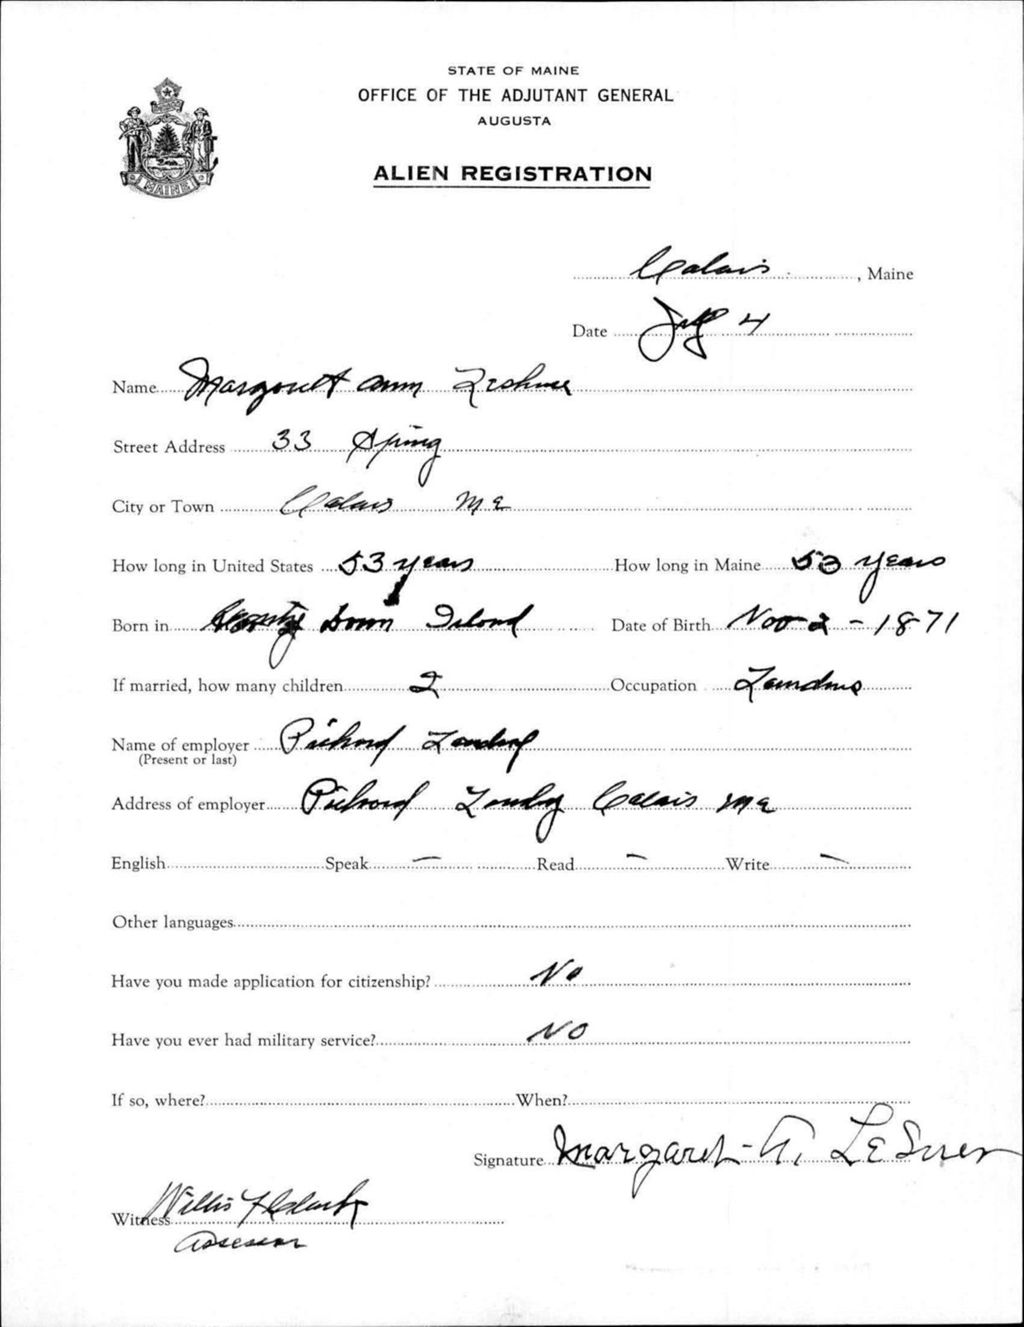 STATE OF MAINE
OFFICE OF THE ADJUTANT GENERAL
AUGUSTA
ALIEN REGISTRATION
MAINE
Calais, Maine
Date July 4
Name Margaret Ann
Street Address 33 Spring
City or Town Calais Me
How long in United States 53 years How long in Maine 53 years
Born in Island Date of Birth Nov 2 - 1871
If married, how many children 2 Occupation
Name of employer Richard Landry
(Present or last)
Address of employer Richard Landry Calais Me
English Speak — Read — Write —
Other languages
Have you made application for citizenship? No
Have you ever had military service? No
If so, where? When?
Signature Margaret A. LeSuer
Witness Willis F Clark
Assessor